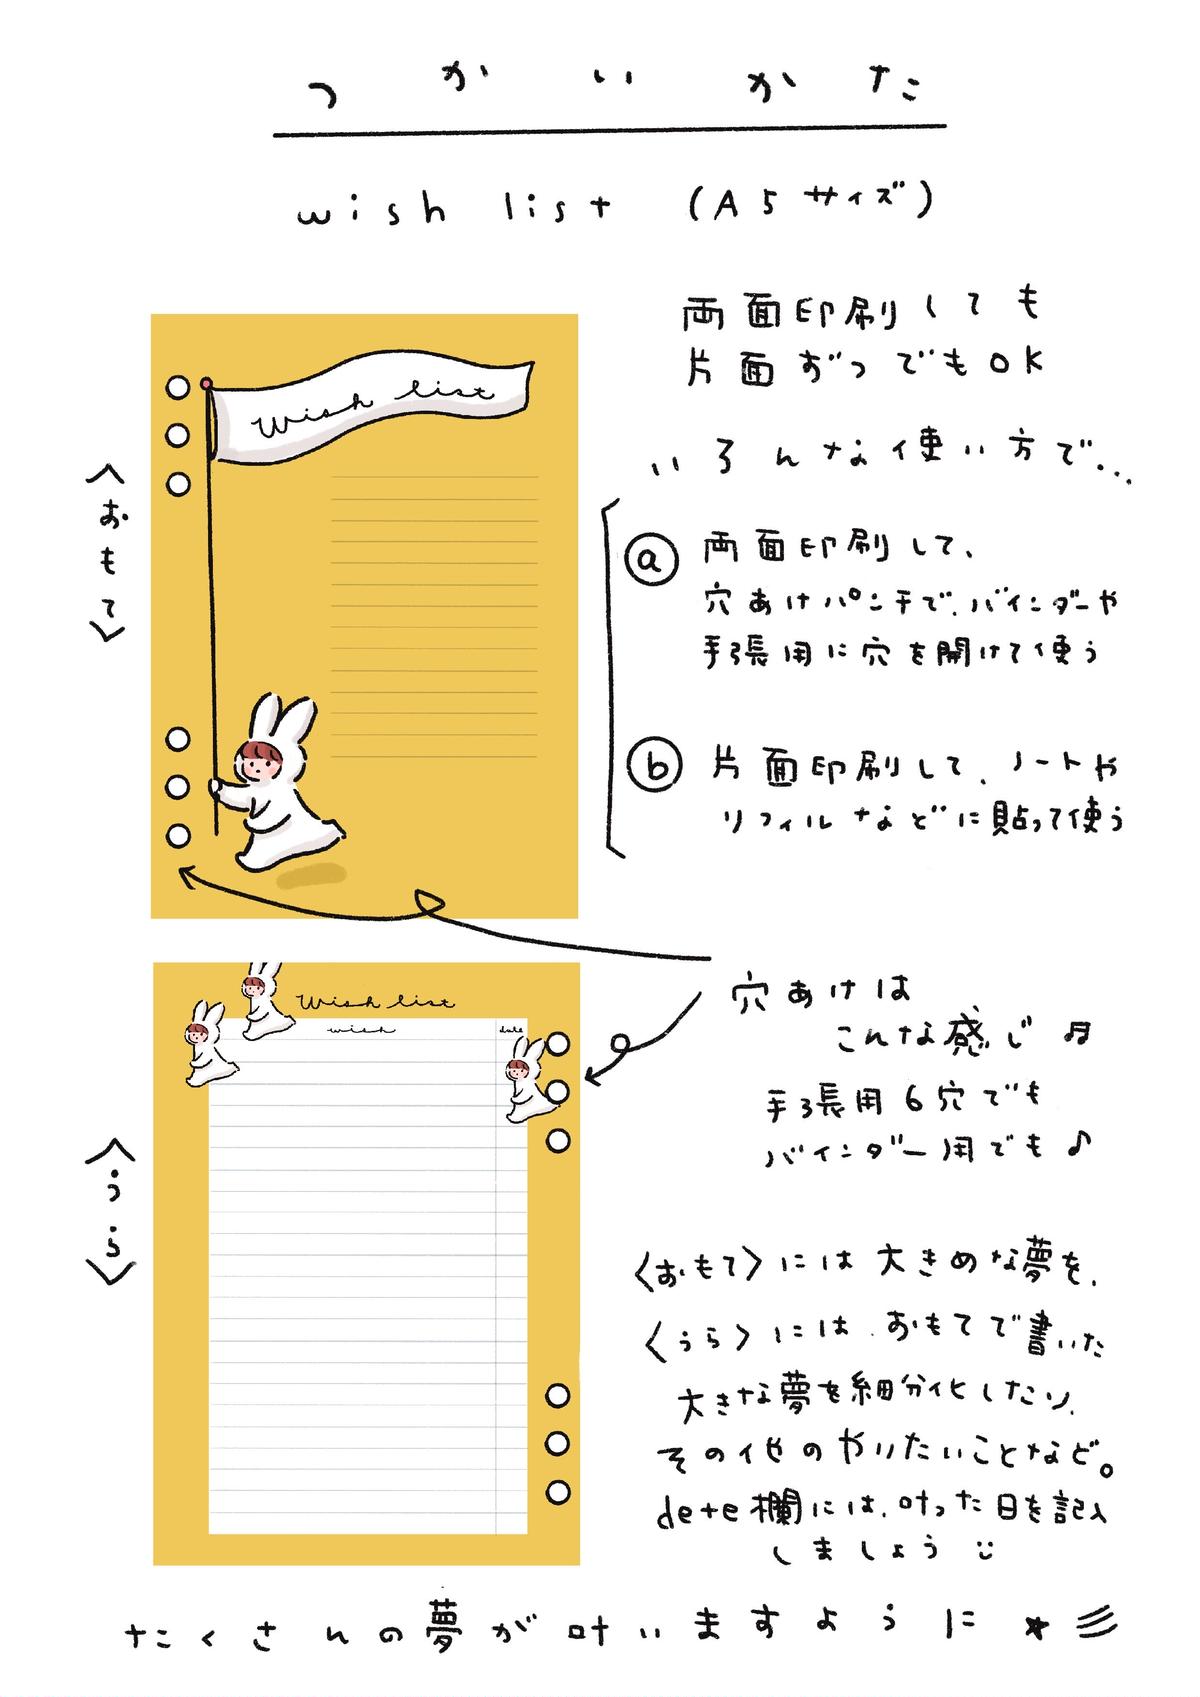 つかいかた
wish list (A5サイズ)
両面印刷しても
片面ずつでもOK
いろんな使い方で...
ⓐ 両面印刷して、
穴あけパンチで、バインダーや
手張用に穴を開けて使う
ⓑ 片面印刷して、ノートや
リフィルなどに貼って使う
〈おもて〉
Wish list
穴あけは
こんな感じ♬
手張用6穴でも
バインダー用でも♪
〈うら〉
Wish list
wish
date
〈おもて〉には大きめな夢を、
〈うら〉には、おもてで書いた
大きな夢を細分化したり、
その他のやりたいことなど。
dete欄には、叶った日を記入
しましょう
たくさんの夢が叶いますように★彡